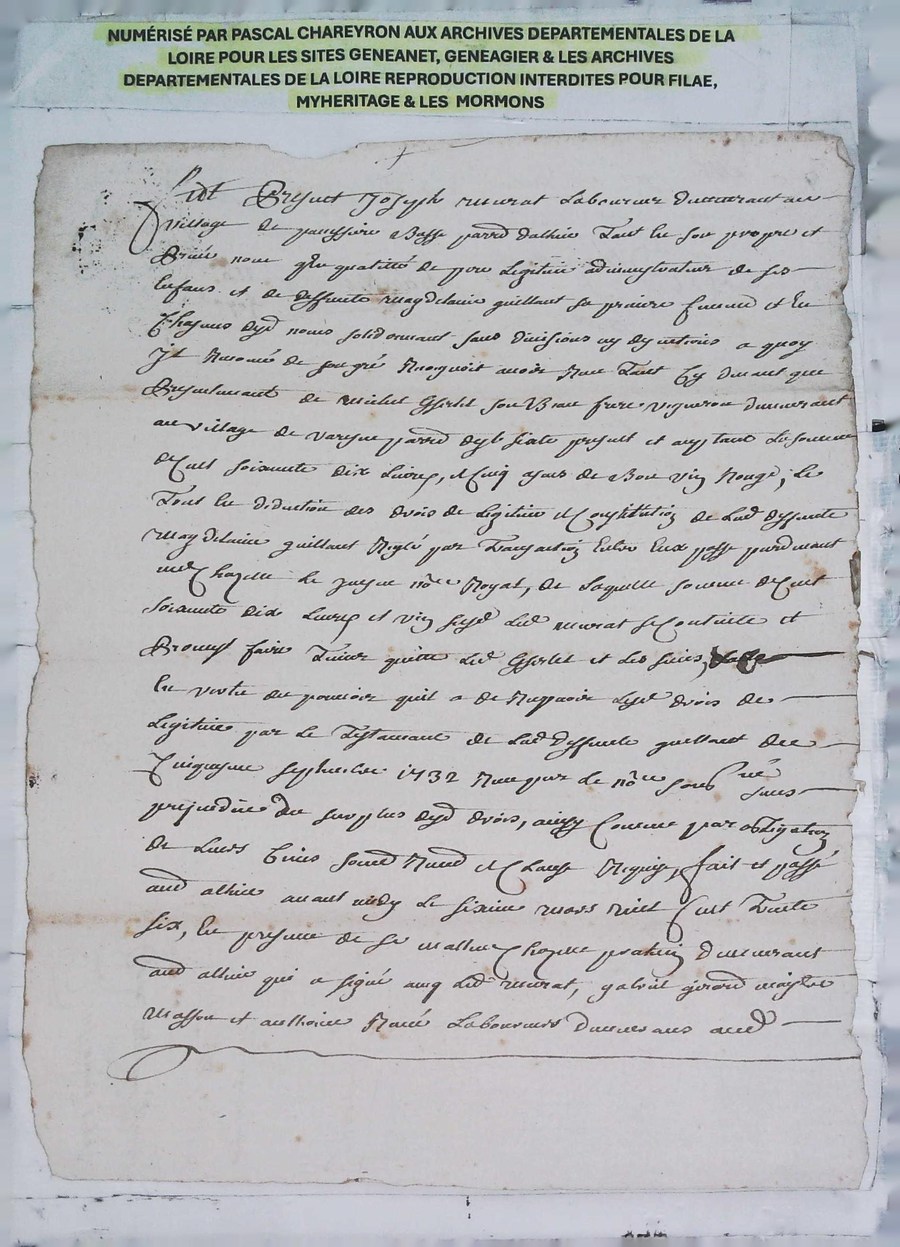 NUMÉRISÉ PAR PASCAL CHAREYRON AUX ARCHIVES DEPARTEMENTALES DE LA
LOIRE POUR LES SITES GENEANET, GENEAGIER & LES ARCHIVES
DEPARTEMENTALES DE LA LOIRE REPRODUCTION INTERDITES POUR FILAE,
MYHERITAGE & LES MORMONS
fut Present Joseph murat Laboureur demeurant au
village de Basse parrd dalhieu Tant en son propre et
Privé nom qen quallité de pere Legitime administrateur de ses
Enfans et de deffunte magdelaine guillant sa premre femme et En
Chacuns desd noms solidermant sans divisions ny dyoutions a quoy
Jl Renoncé de son gré Reconnoit avoir Reeu Tant Cy devant que
Presentement de michel son Beau frere vigneron demeurant
au village de parrd present et acceptant La somme
de Cent soixante dix Livres, et Cinq de Bon vin Rouge, Le
Tout En deduction des drois de Legitime et Constitution de Lad deffunte
magdelaine guillant Reglé par Transaction Entre Eux passé pardevant
me Chazelle Le notre Royal, de Laquelle somme de Cent
soixante dix Livres et vin susd Led murat se Contente et
Promet faire Tenir quitte Led et Les siens,
En vertu du pouvoir quil a de Recevoir Lesd drois de
Legitime par Le Testament de Lad deffunte guillant du
Cinquiesme septembre 1732 Receu par Le nore sousné sans
prejudice du surplus desd drois, ainsy Convenu par obligation
de Leurs biens soumd Renond et Clause Requise, fait et passé
aud alhieu avant midy Le sixieme mars mil sept Cent Trente
six, En presence de sr mathieu Chazelle praticien demeurant
aud alhieu qui a signé avec Led murat, gabriel girard maistre
masson et anthoine Laboureurs demeurans aud